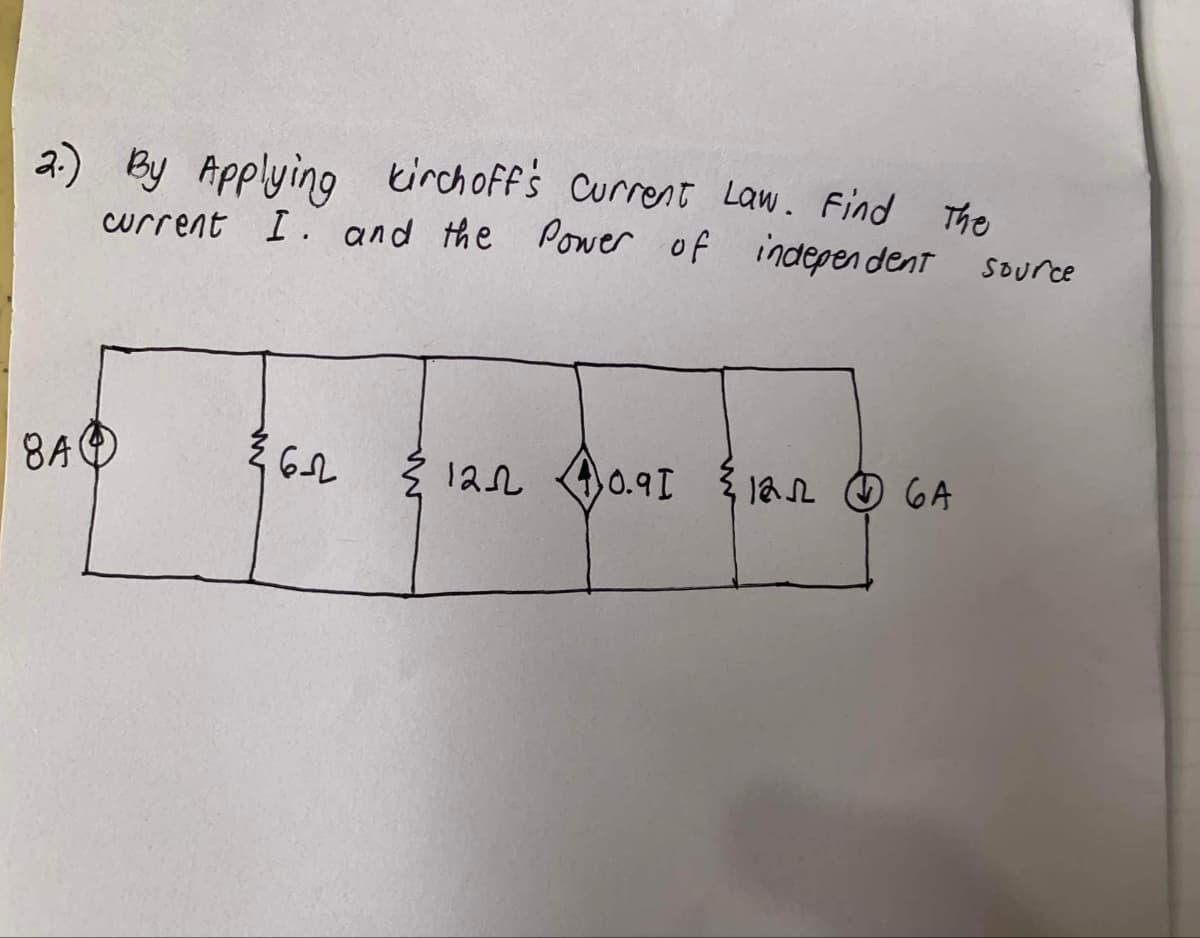 2.) By Applying kirchoff's Current Law. Find The
current I. and the Power of independent source
8A 6Ω 12Ω 0.9I 12Ω 6A